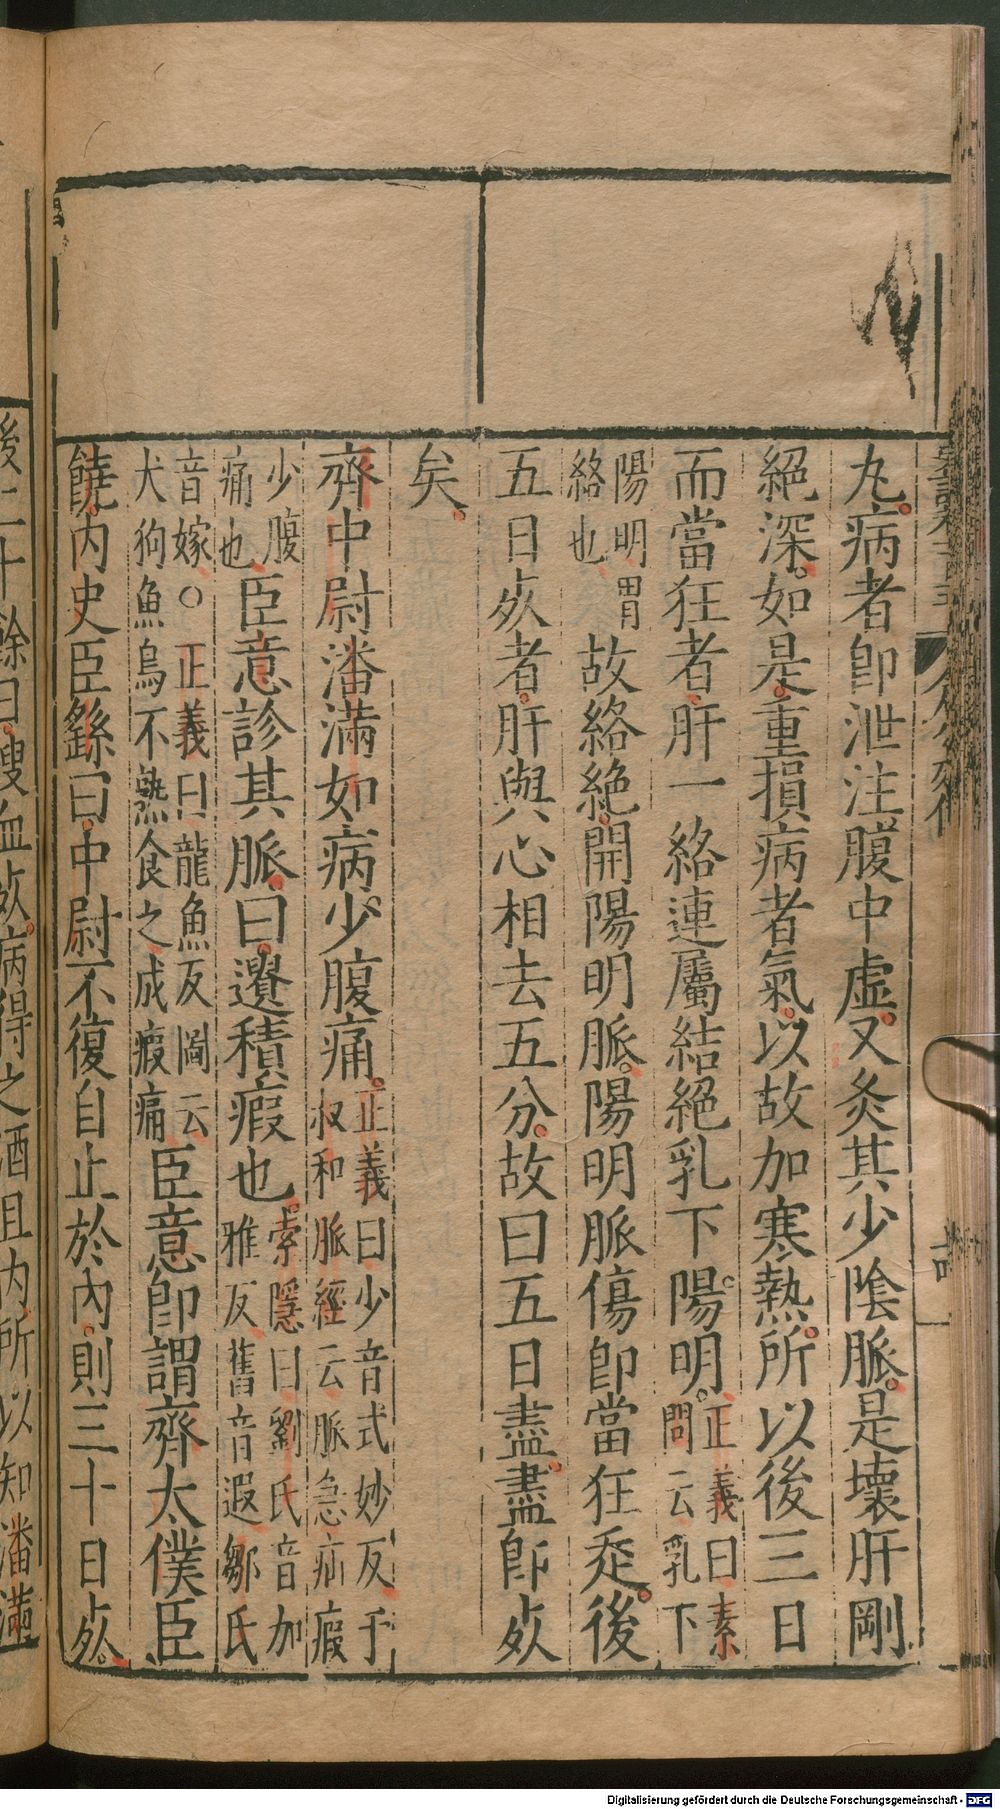 丸病者卽泄注腹中虚又灸其少陰脈是壞肝剛
絕深如是重損病者氣以故加寒熱所以後三日
而當狂者肝一絡連屬結絕乳下陽明正義曰素
問云乳下
陽明胃
絡也故絡絕開陽明脈陽明脈傷卽當狂走後
五日死者肝與心相去五分故曰五日盡盡卽死
矣
齊中尉潘滿如病少腹痛正義曰少音式妙反于
叔和脈經云脈急疝瘕
少腹
痛也臣意診其脈曰遺積瘕也索隱曰劉氏音加
雅反舊音遐鄒氏
音嫁○正義曰龍魚反圖云
犬狗魚鳥不熟食之成瘕痛臣意卽謂齊太僕臣
饒內史臣繇曰中尉不復自止於內則三十日死
後二十餘日溲血死病得之酒且內所以知潘滿
Digitalisierung gefördert durch die Deutsche Forschungsgemeinschaft - DFG